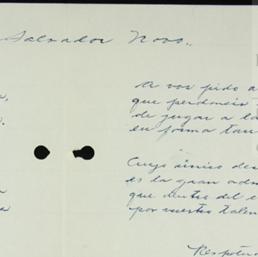 Salvador Novo.,
A vos pido a
que perdonéis
de jugar a la
en forma tan
Cuyo único des
es la gran adm
que dentro del e
por vuestro talen
Respetuo